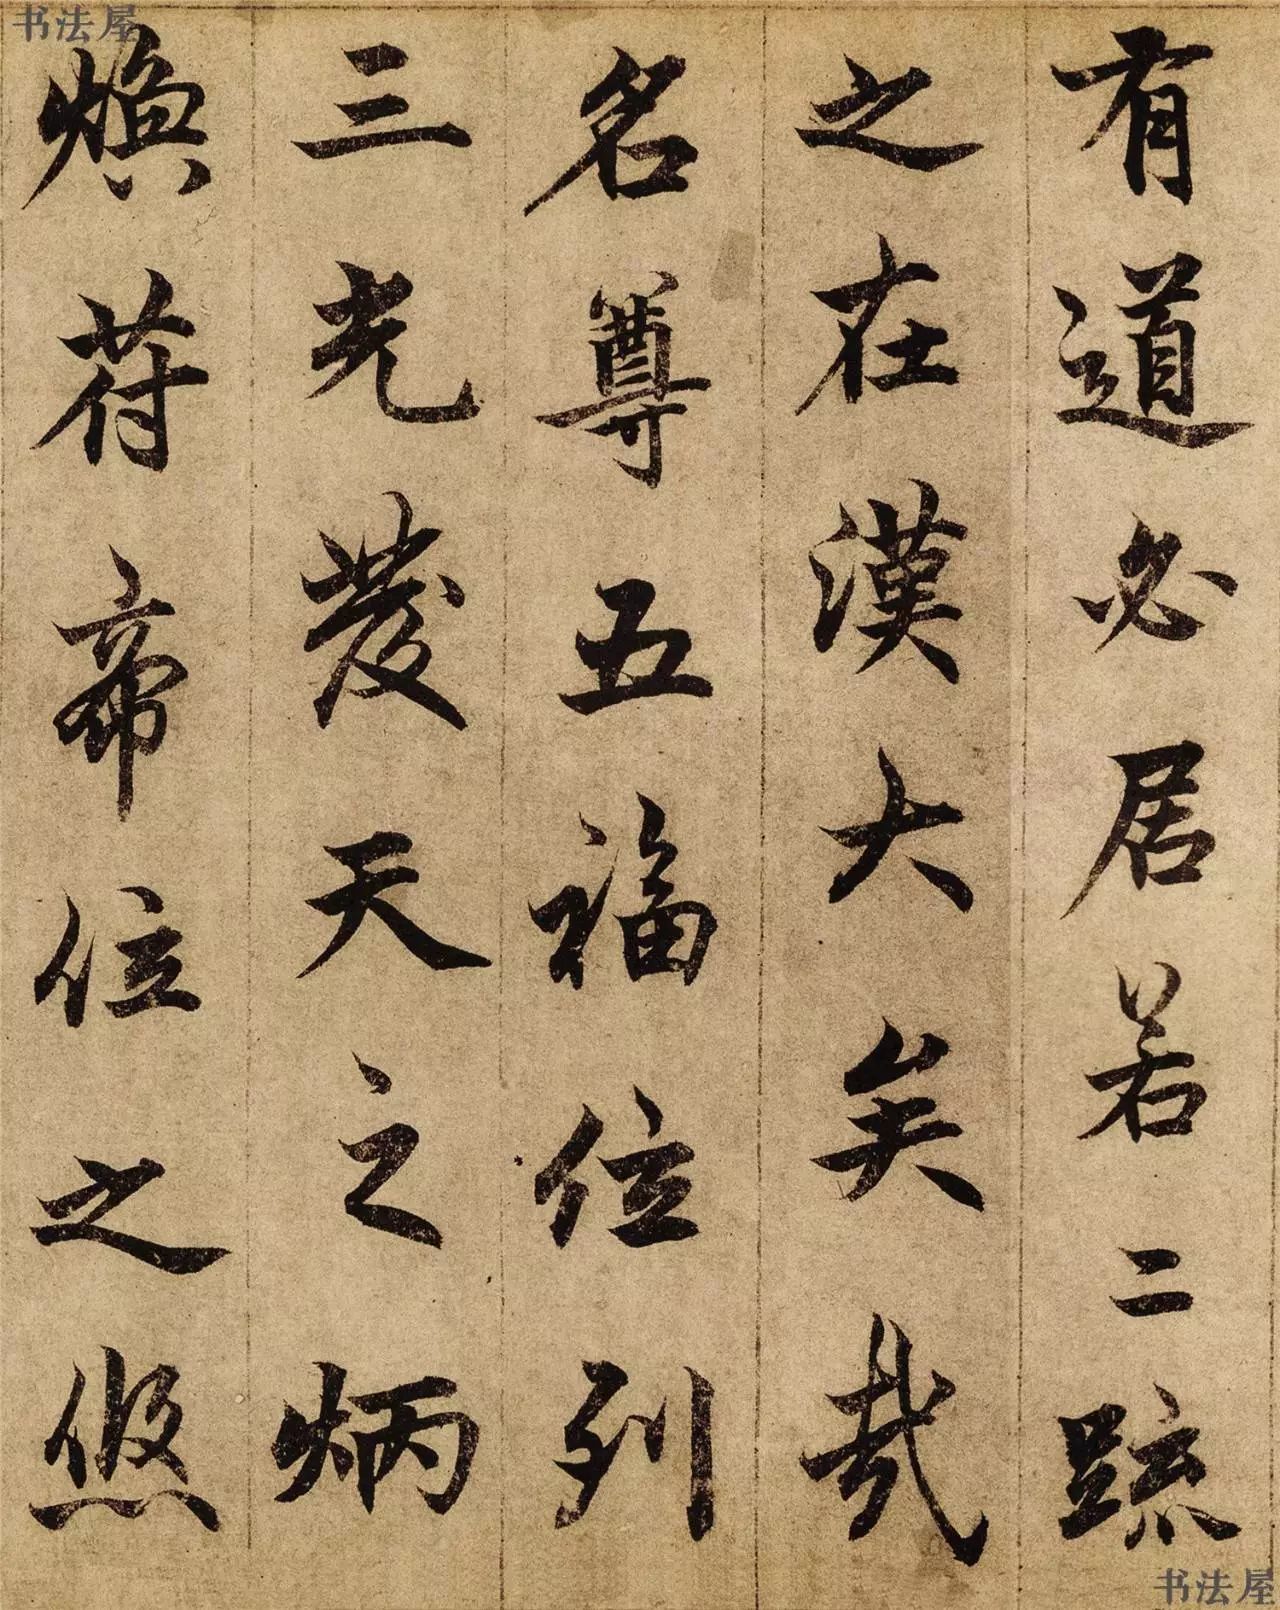 书法屋
有道必居若二疏
之在漢大矣哉
名尊五福位列
三光發天之炳
煥苻帝位之悠
书法屋